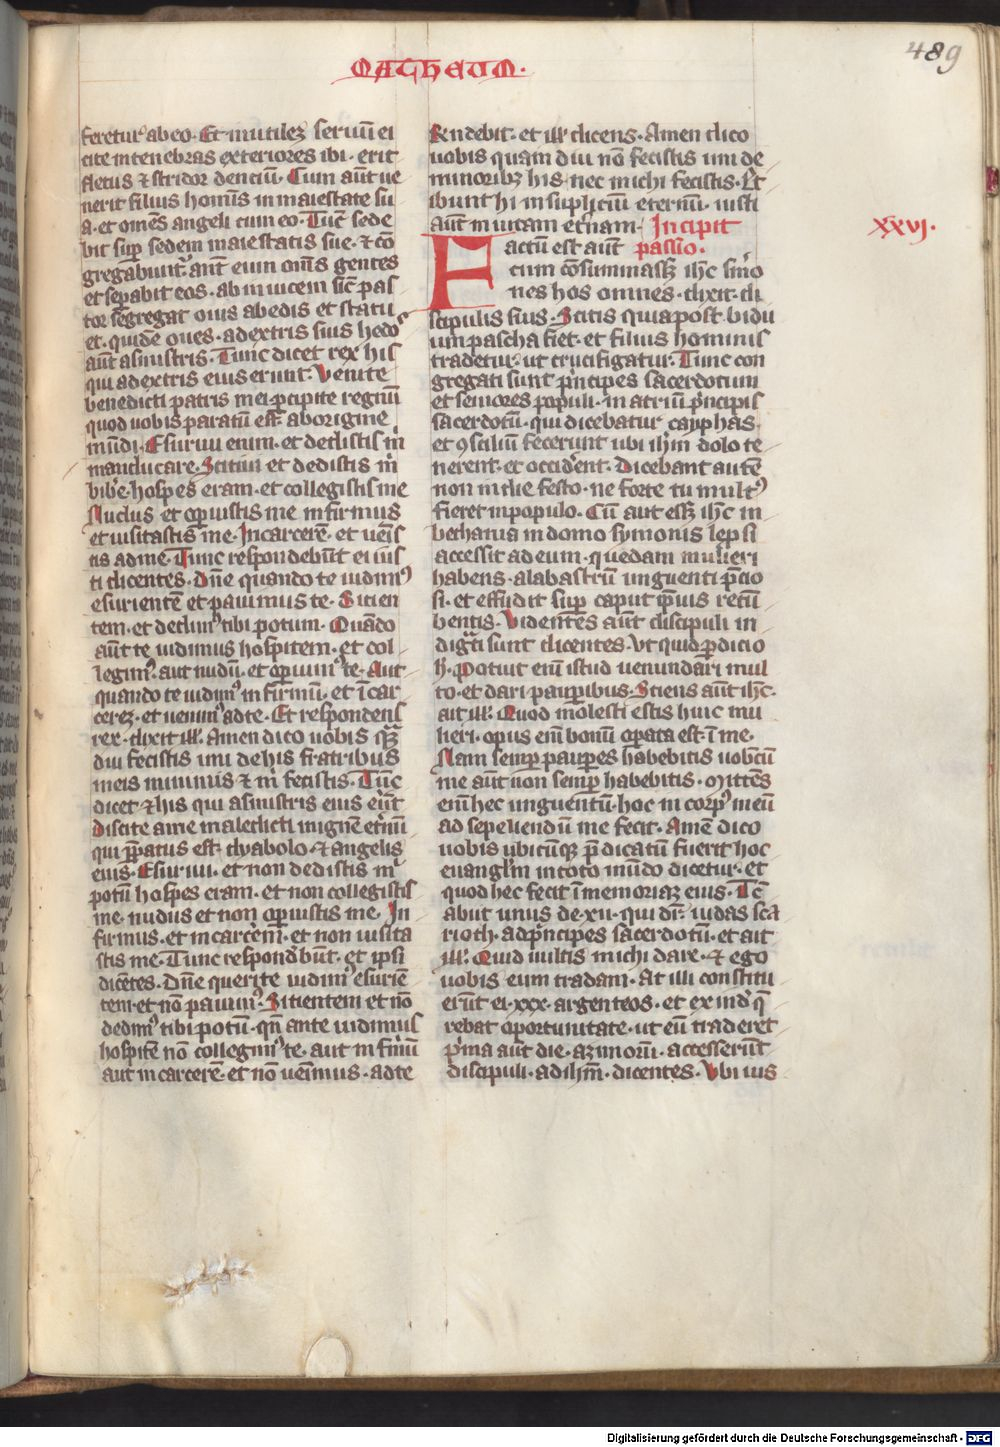 MATHEUM.
489
feretur ab eo. Et inutilez seruū ei
cite in tenebras exteriores ibi. erit
fletus & stridor denciū. Cum aūt ue
nerit filius homīs in maiestate su
a. et omēs angeli cum eo. Tūc sede
bit sup sedem maiestatis sue. & cō
gregabuntᷣ ant eum om̄s gentes
et sepabit eos. ab inuicem sic̄ pas
tor segregat ouis ab edis et statu
et. quidē oues. a dextris suis hedoˢ
aūt a sinistris. Tunc dicet rex his
qui a dextris eius erunt. Venite
benedicti patris mei pcipite regnū
quod uobis paratū est. ab origine
mūdi. Esuriui enim. et dedistis m̄
manducare. Sitiui et dedistis m̄
bibe. hospes eram. et collegistis me
Nudus et opuistis me infirmus
et uisitastis me. In carcere. et ueīs
tis ad me. Tunc respondebūt ei ius
ti dicentes. Dn̄e quando te uidimꝰ
esurientē et pauimus te. Sitien
tem. et dedimꝰ tibi potum. Quādo
aūt te uidimus hospitem. et col
legimꝰ. aut nudū. et opuimꝰ te. Aut
quando te uidimꝰ infirmū. et ī car
cerez. et uenimꝰ ad te. Et respondens
rex. dixit ill. Amen dico uobis q̄
diu fecistis uni de his fratribus
meis minimis & m̄ fecistis. Tūc
dicet & his qui a sinistris eius erūt
Discite a me maledicti in ignē etnū
qui ppatus est. dyabolo & angelis
eius. Esuriui. et non dedistis m̄
potū hospes eram. et non collegistis
me. nudus et non opuistis me. In
firmus. et in carcem. et non uisita
stis me. Tunc respondbūt. et ipsi
dicētes. Dn̄e querite uidimꝰ esuriē
tem et nō pauimꝰ. Sitientem et nō
dedimꝰ tibi potū. qn̄ ante uidimus
hospitē nō collegimꝰ te. aut infmū
aut in carcerē. et nō ueīmus. ad te
Rendebit. et ill dicens. Amen dico
uobis quam diu nō fecistis uni de
minoribz his. nec michi fecistis. Et
ibunt hi in supliciū eternū. iusti
aūt in uitam etnam. Incipit
Factū est aūt passio.
cum cōsummassz ihc smo
nes hos omnes. dixit. di
scipulis suis. Scitis quia post bidu
um pascha fiet. et filius hominis
tradetur. ut crucifigatur. Tunc con
gregati sunt pncipes sacerdotum
et seniores populi. in atriū pncipis
sacerdotū. qui dicebatur cayphas.
et ꝯsciliū fecerunt ubi ihm dolo te
nerent. et occident. Dicebant autē
non in die festo. ne forte tumultꝰ
fieret in populo. Cū aut essz ihc in
bethania in domo symonis lepsi
accessit ad eum. quedam mulieri
habens. alabastrū unguenti pcio
si. et effudit sup caput ipius recū
bentis. Videntes aūt discipuli in
digti sunt dicentes. Ut quid pdicio
h. Potuit enī istud uenundari mul
to. et dari paupibus. Sciens aūt ihc.
ait ill. Quod molesti estis huic mu
lieri. opus enī bonū operata est ī me.
Nam semp paupes habebitis uobcū
me aūt non semp habebitis. Mittēs
enī hec unguentū. hoc in corpꝰ meū
ad sepeliendū me fecit. Amē dico
uobis ubicūq pdicatū fuerit hoc
euanglm in toto mūdo dicetur. et
quod hec fecit ī memoriaz eius. Tc̄
abiit unus de. xii. qui dr. iudas sca
rioth. ad pncipes sacerdotū. et ait
ill. Quid uultis michi dare. & ego
uobis eum tradam. At illi constitu
erūt ei. xxx. argenteos. et ex ind q̄
rebat oportunitate. ut eū traderet
pma aūt die. azimorū. accesserūt
discipuli. ad ihm. dicentes. Vbi uis
xxvj.
Digitalisierung gefördert durch die Deutsche Forschungsgemeinschaft - DFG